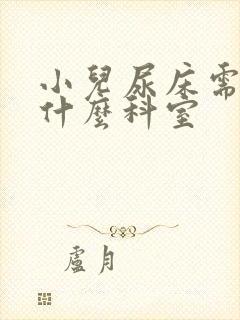 小兒尿床需
什麼科室
盧月